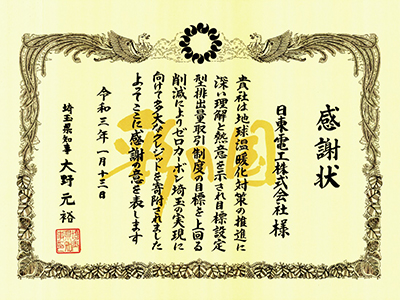 感謝状
日東電工株式会社 様
貴社は地球温暖化対策の推進に
深い理解と熱意を示され目標設定
型排出量取引制度の目標を上回る
削減によりゼロカーボン埼玉の実現に
向けて多大なクレジットを寄附されました
よってここに感謝の意を表します
令和三年一月十三日
埼玉県知事 大野元裕